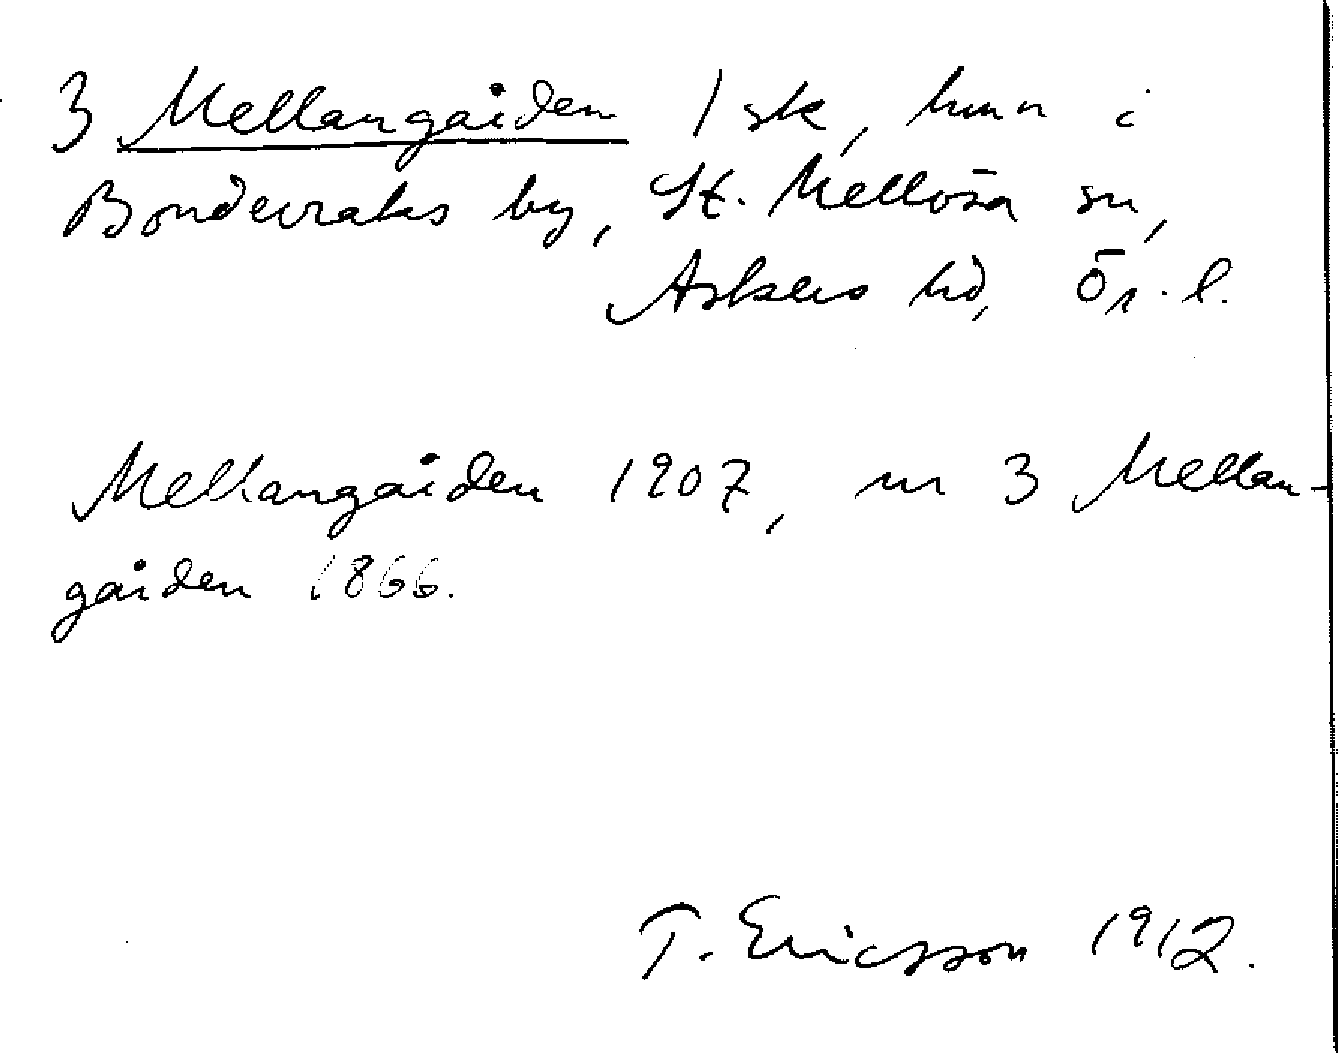 3 Mellangården 1 sk, hmn i
Bondevraks by, St. Mellösa sn,
Askers hd, Ör. l.
Mellangården 1907, nr 3 Mellan-
gården 1866.
T. Ericsson 1912.